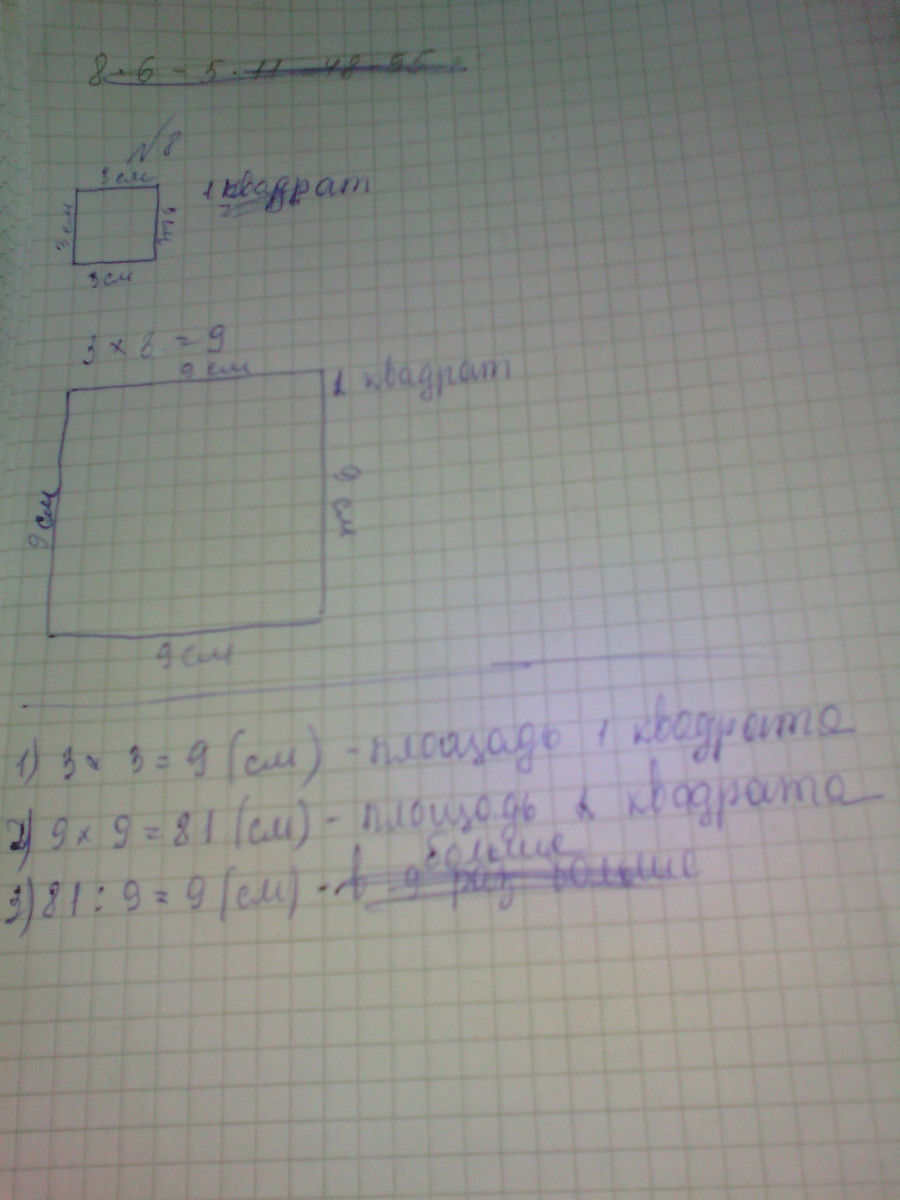 8 · 6 - 5 · 11 48 55
№8
3 см
1 квадрат
3 см
3 см
3 × 3 = 9
9 см
2 квадрат
9 см
9 см
9 см
1) 3 × 3 = 9 (см) - площадь 1 квадрата
2) 9 × 9 = 81 (см) - площадь 2 квадрата
больше
3) 81 : 9 = 9 (см) - в 9 раз больше